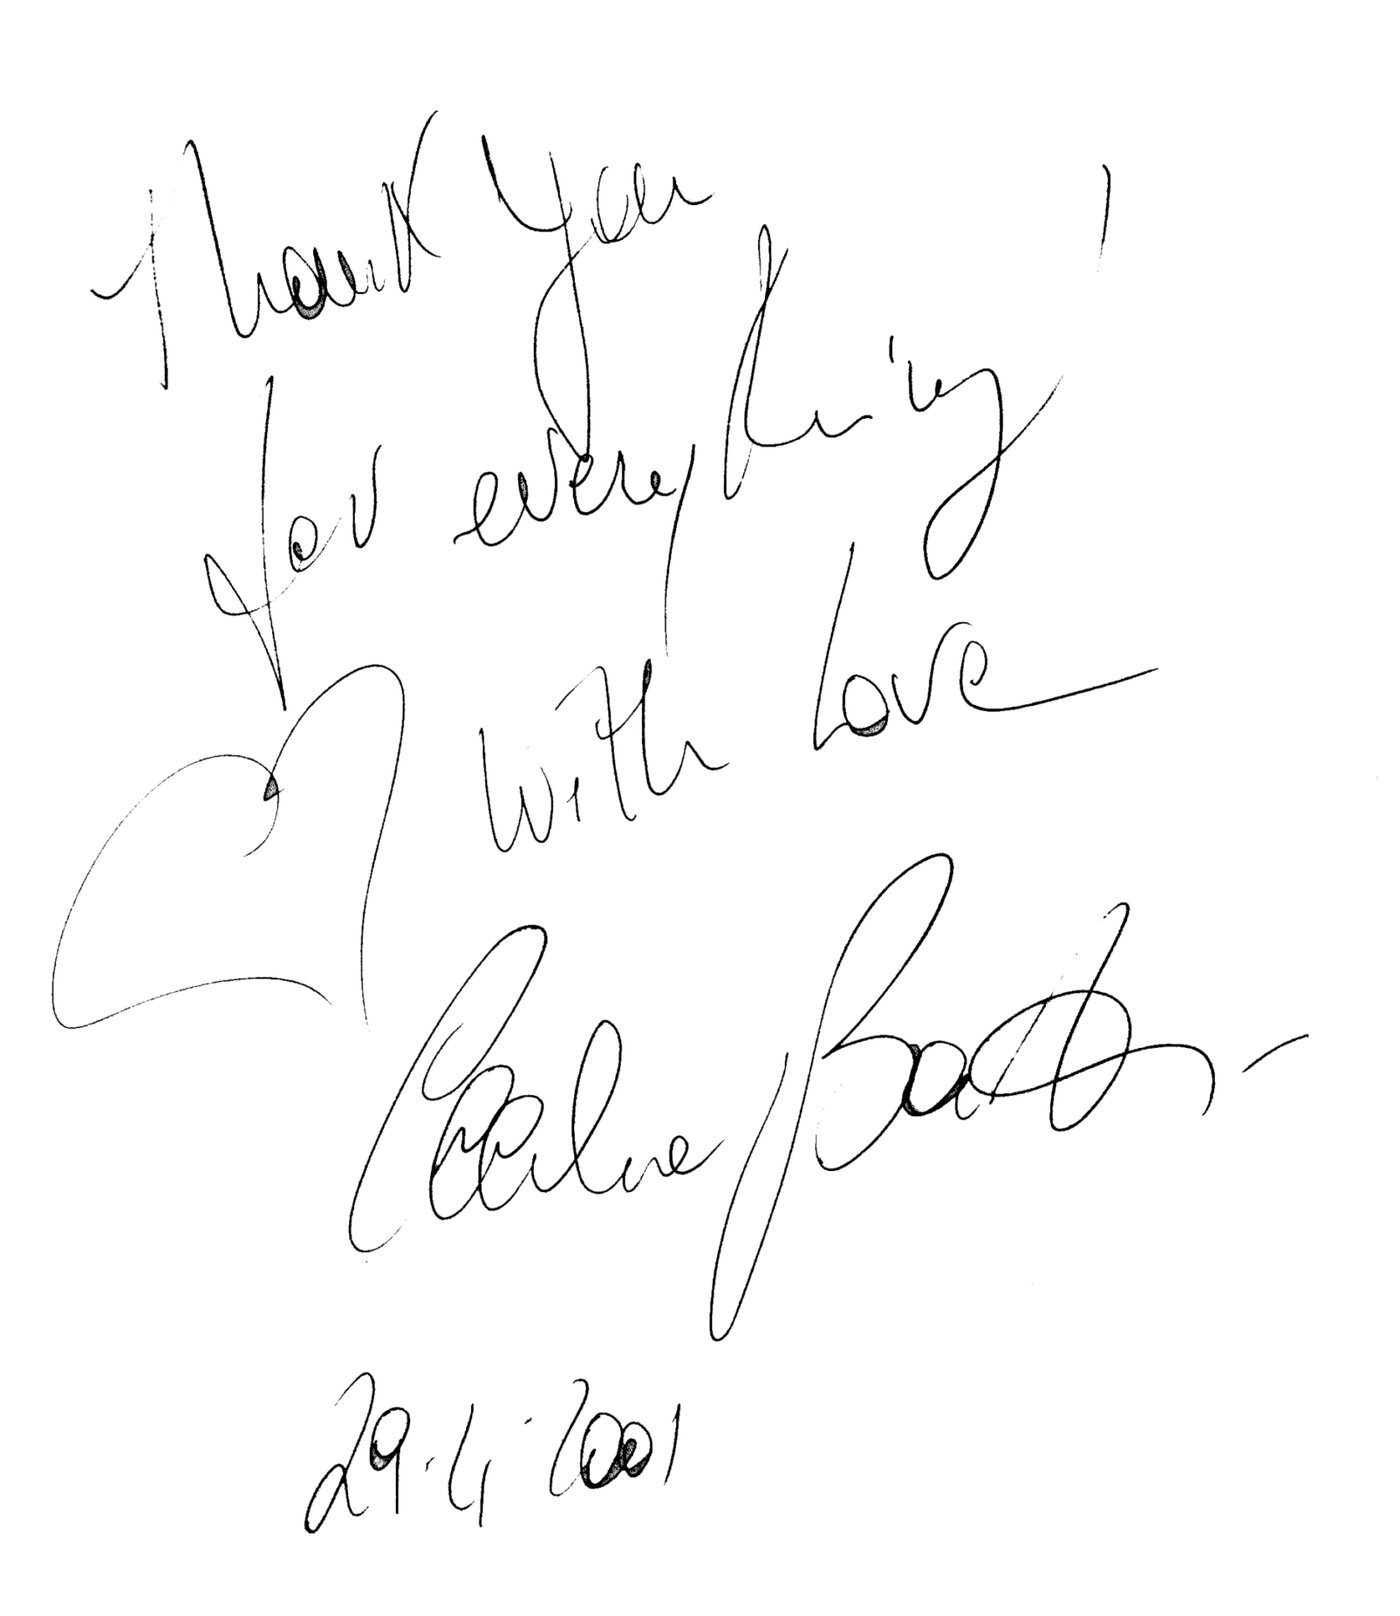 Thank You
for everything!
With Love
Cecilia Bartoli
29.4.2001